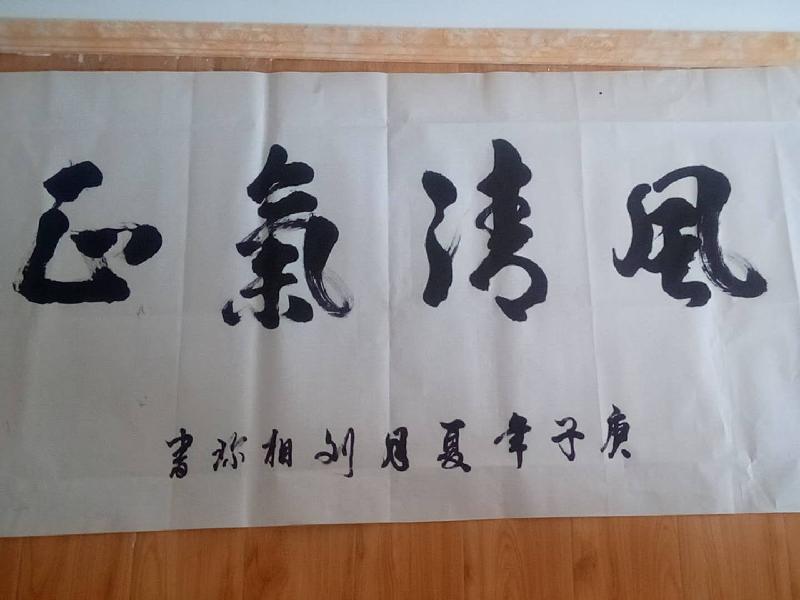 風清氣正
庚子年夏月刘相珎書